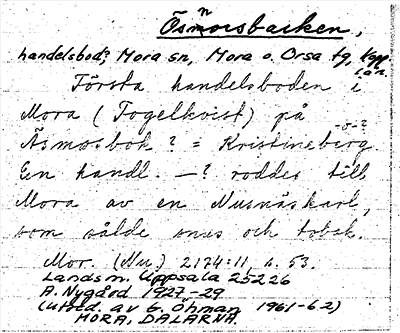 Åsmorsbacken,
n
handelsbod, Mora sn, Mora o. Orsa tg, Kopp.
län.
Första handelsboden i
Mora (Fogelkvist) på
Åsmosbok ? = Kristineberg
-o-?
En handl. —? roddes till
Mora av en Nusnäskarl,
som sålde snus och tobak.
Mor. (Nu.) 2174:11, s. 53.
Landsm. Uppsala 25226
A. Nygård 1927-29
(utred. av G. Öhman 1961-62)
MORA, DALARNA